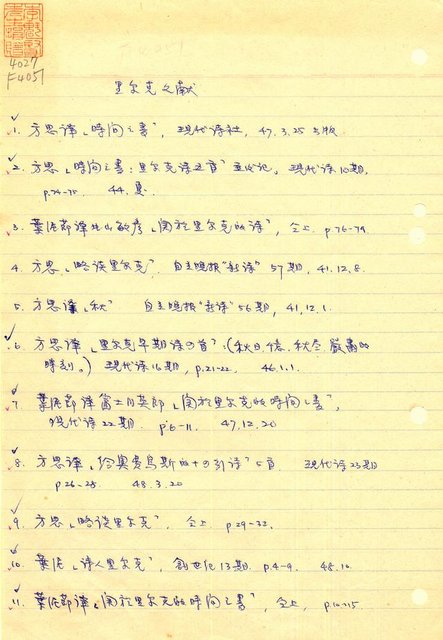 4027
F4051
里尔克文献
1. 方思譯「時间之書」, 现代诗社, 47.3.25 出版
2. 方思「時间之書:里尔克诗五首」並代记, 现代诗10期,
p.74-75. 44. 夏.
3. 葉泥節譯 敏彦「関於里尔克的诗」, 仝上 p.76-79.
4. 方思「略谈里尔克」, 自立晚报"新诗" 57期, 41.12.8.
5. 方思譯「秋」 自立晚报"新诗" 56期, 41.12.1.
6. 方思譯「里尔克早期诗四首」(秋日. 秋. 嚴肅的
時刻。) 现代诗16期, p.21-22. 46.1.1.
7. 葉泥節译富士川英郎「関於里尔克的時间之書」,
现代诗22期. p.6-11. 47.12.20
8. 方思譯「给奥费乌斯的十四引诗」5首. 现代诗23期
p.26-28. 48.3.20
9. 方思「略谈里尔克」, 仝上 p.29-32.
10. 葉泥「诗人里尔克」, 創世纪13期. p.4-9. 48.10.
11. 葉泥節譯「関於里尔克的時间之書」, 仝上, p.10-15.